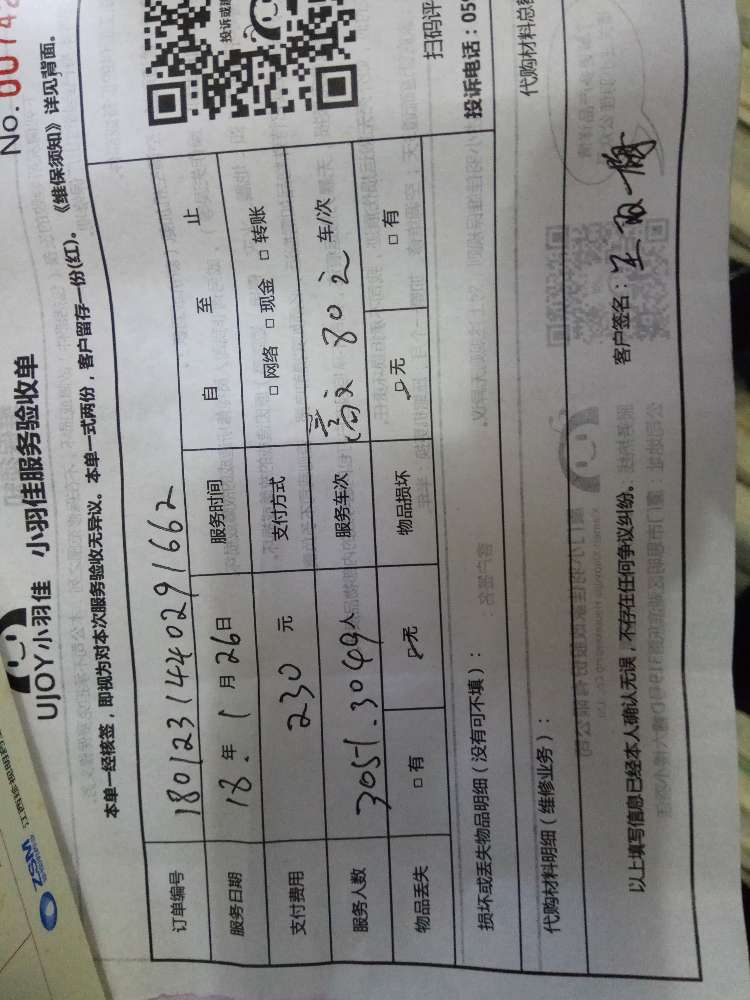 No. 00742
UJOY小羽佳 小羽佳服务验收单
本单一经核签，即视为对本次服务验收无异议。本单一式两份，客户留存一份(红)。《维保须知》详见背面。
订单编号 180123144029166 2
服务日期 18.年 1 月 26 日 服务时间 自 至 止
支付费用 230 元 支付方式 □ 网络 □ 现金 □ 转账
服务人数 3051.3049 人 服务车次 802 车/次
物品丢失 □ 有 无 物品损坏 无 □ 有
损坏或丢失物品明细（没有可不填）：
代购材料明细（维修业务）： 代购材料总
以上填写信息已经本人确认无误，不存在任何争议纠纷。 客户签名：王
扫码评
投诉电话：059
ZSM